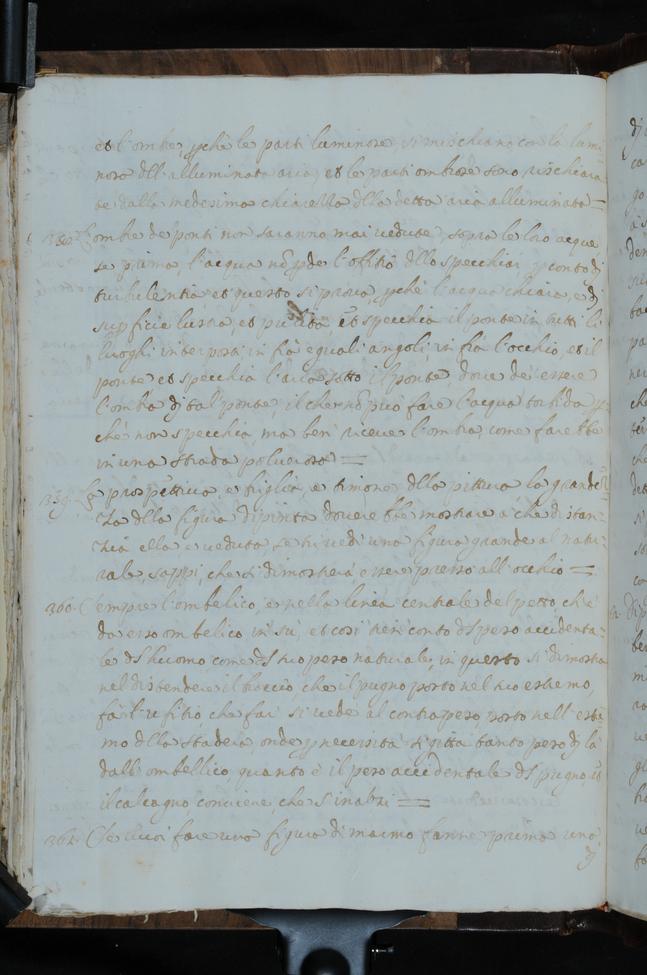 et l'ombre, pche le parti luminose si mischiano con la lumi-
nosa dll'alluminata aria, et le parti ombrose sono rischiara
te dalla medesima chiarezza dlla detta aria alluminata =
L'ombre de ponti non saranno mai vedute, sopra le loro acque
se prima, l'acqua nō pde l'offitio dllo specchiar p conto dj
turbulentia et questo si prova, pche l'acqua chiara, e dj
supficie lustra, et pulita, et specchia il ponte in tutti li
luoghi interposti in fra equali angoli, in fra l'occhio, et il
ponte et specchia l'aria sotto il ponte, dove de' essere
l'ombra dj tal ponte, il che nō può fare l'acqua torbida p-
che non specchia, ma ben' riceve l'ombra, come farebbe
in una strada polverosa =
359. La prospettiva, e briglia, e timone dlla pittura la grandez-
za dlla figura dipinta doverebbe mostrare a che distan-
tia ella è veduta, se tu vedi una figura grande al natu-
rale, sappi, che si dimostrerà essere presso all'occhio =
360. Sempre l'ombelico, e nella linea centrale del petto, ch'è
da esso ombelico in sù, et così tien conto dl peso accidenta-
le dl huomo, come dl suo peso naturale, in questo si dimostra
nel distendere il braccio, che il pugno posto nel suo estremo,
fà l'ufitio, che far' si vede al contrapeso posto nell'estre
mo dlla stadera, onde p necessità si gitta tanto peso dj là
dall'ombellico, quanto è il peso accidentale dl pugno, et
il calcagno conviene, che s'inalzi =
361. Se vuoi fare una figura di marmo fanne prima una
dj